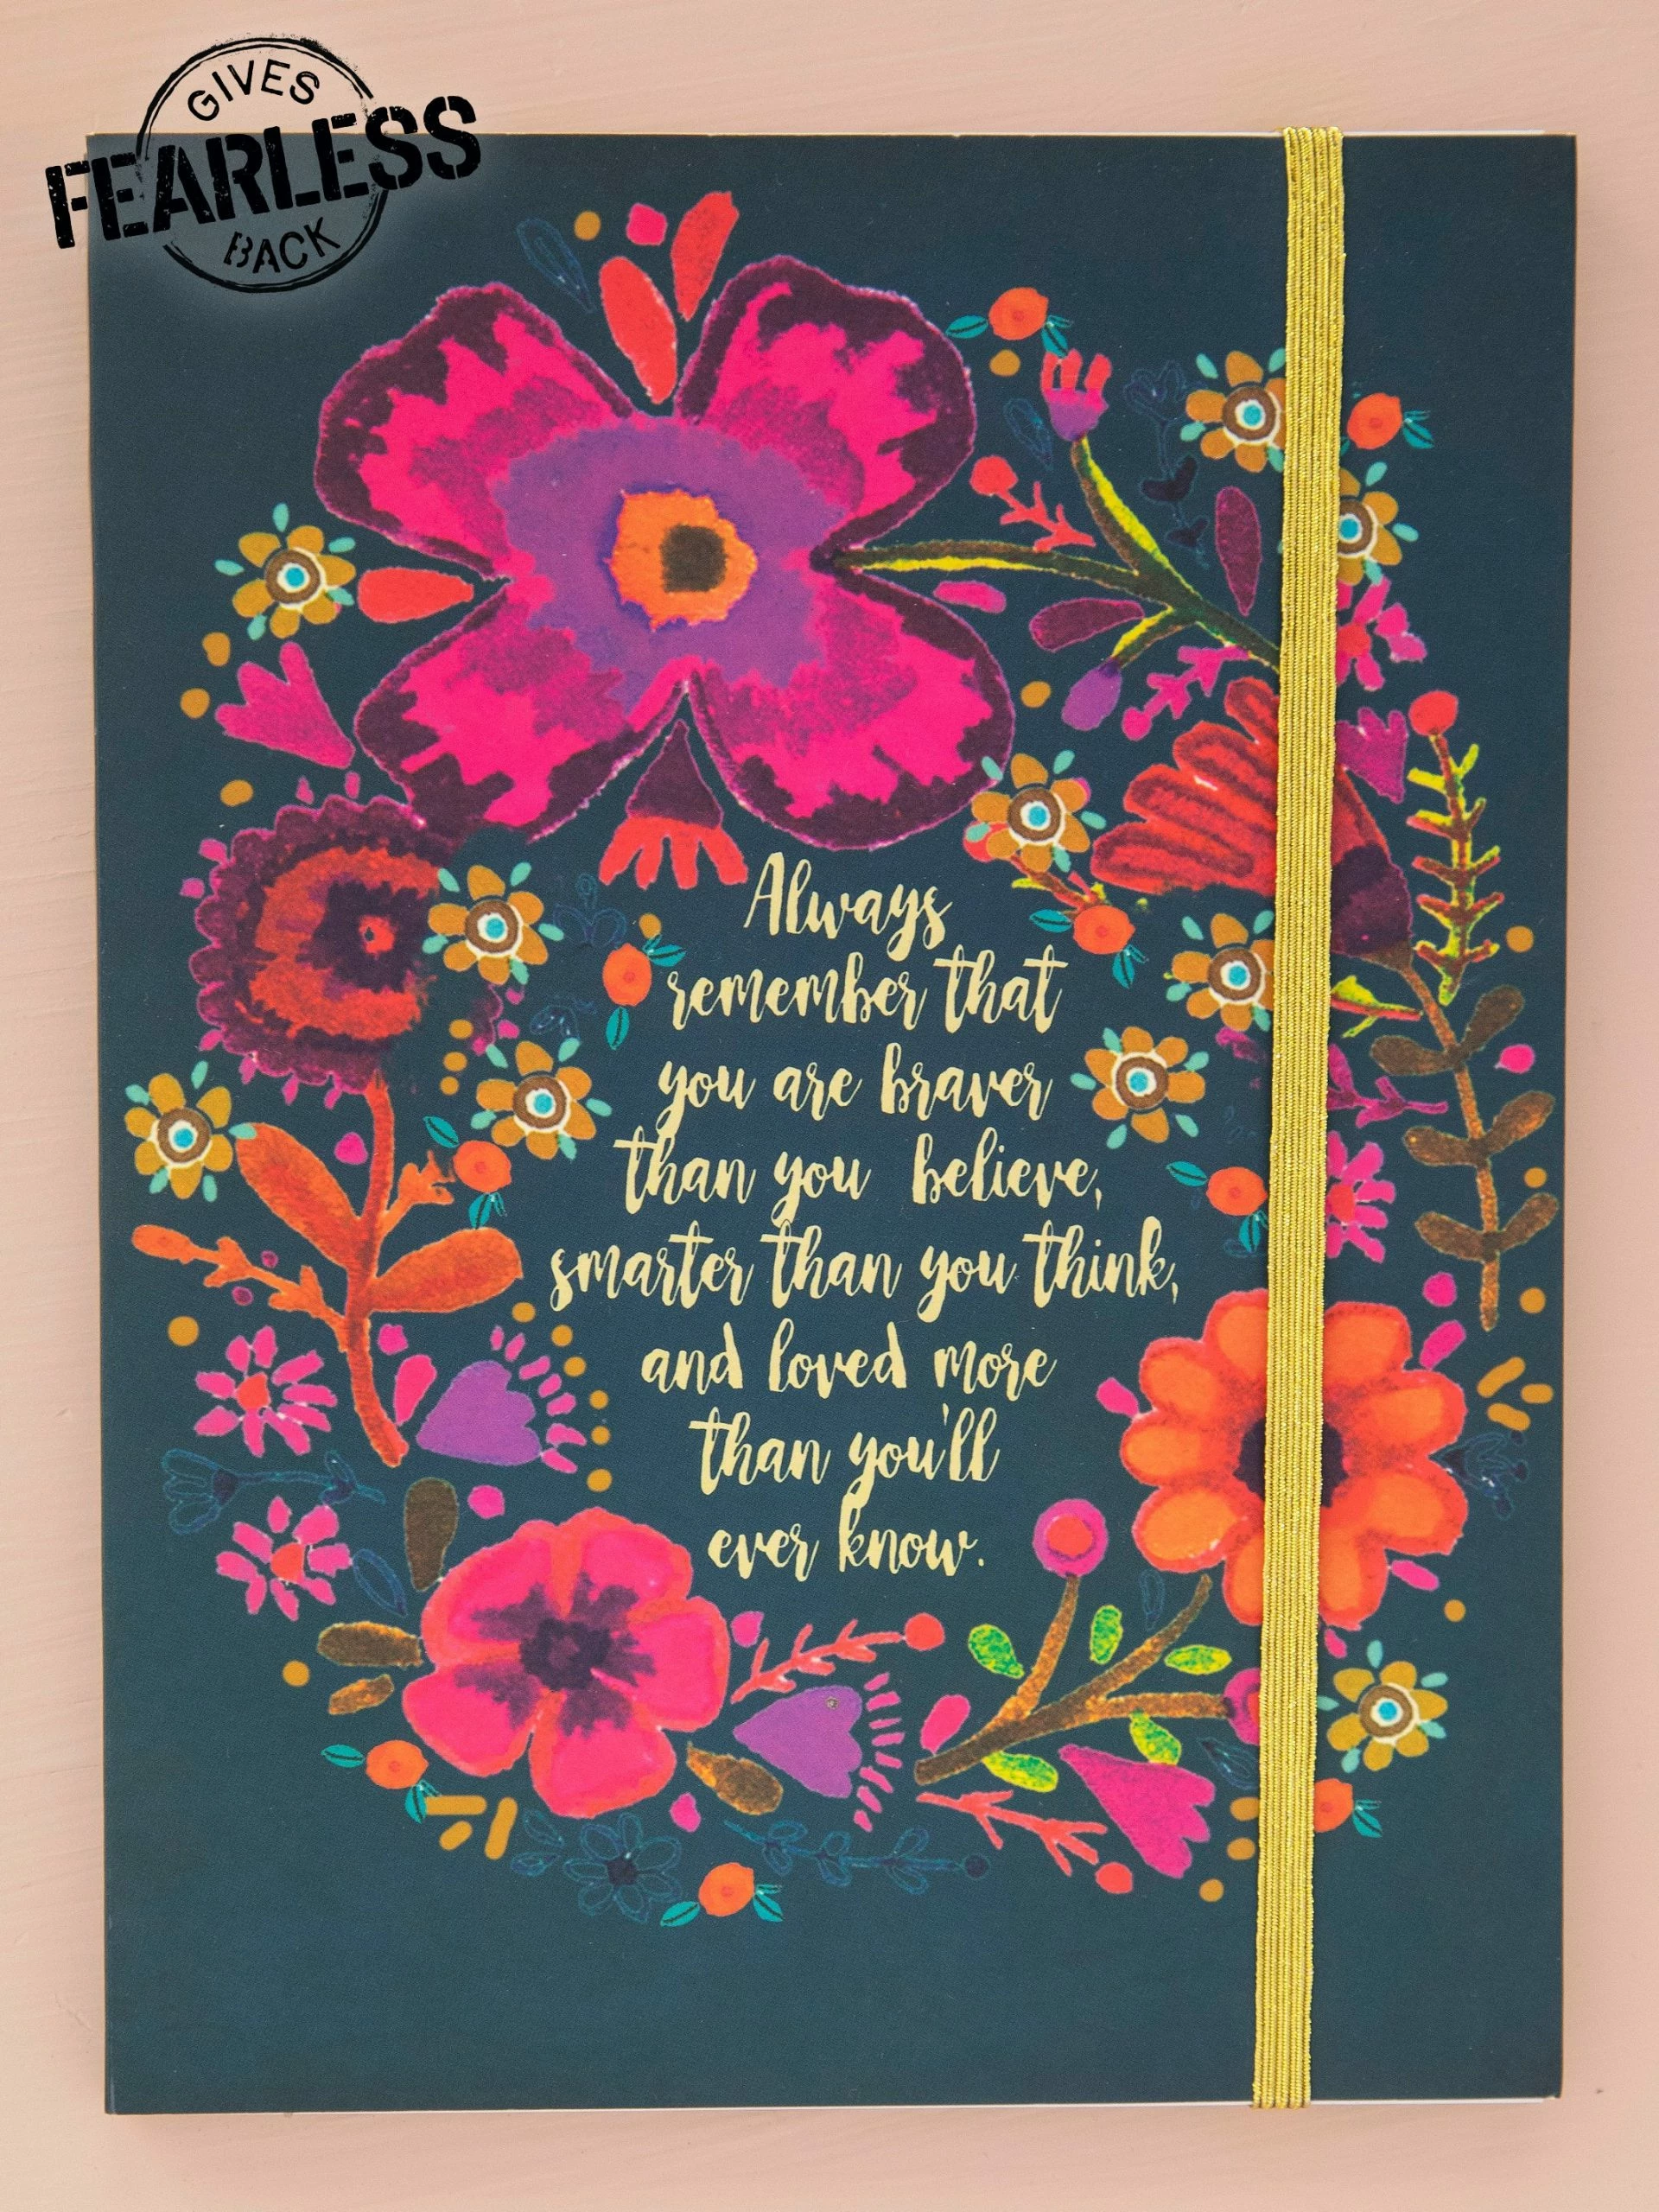 GIVES
FEARLESS
BACK
Always
remember that
you are braver
than you believe,
smarter than you think,
and loved more
than you'll
ever know.